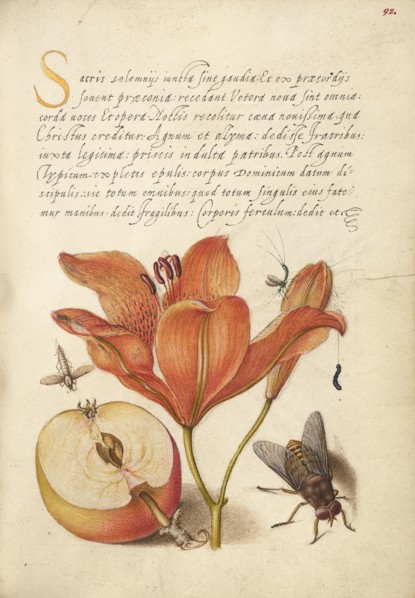 92.
Sacris solemnijs iuncta sint gaudia: Et ex præcordijs
sonent præconia: recedant Vetera noua sint omnia:
corda uoces et opera. Noctis recolitur cæna nouissima: qua
Christus creditur: Agnum et azyma: dedisse fratribus:
iuxta legitima: priscis indulta patribus. Post agnum
typicum: expletis epulis: corpus Dominicum datum di-
scipulis: sic totum omnibus: quod totum singulis eius fate-
mur manibus. dedit fragilibus: Corporis ferculum: dedit et